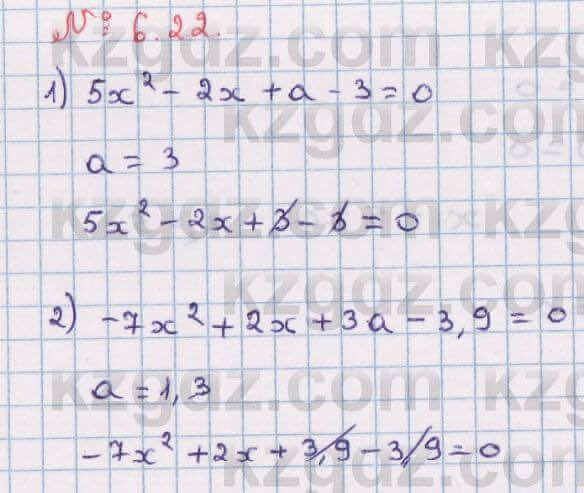 № 6.22.
1) 5x² - 2x + a - 3 = 0
a = 3
5x² - 2x + 3 - 3 = 0
2) -7x² + 2x + 3a - 3,9 = 0
a = 1,3
-7x² + 2x + 3,9 - 3,9 = 0
kzgdz.com